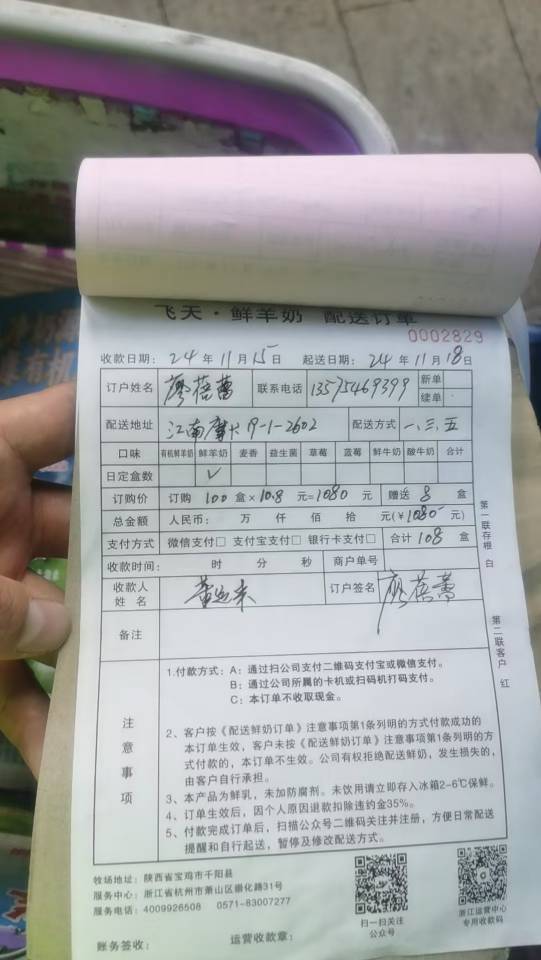 飞天·鲜羊奶 配送订单
0002829
收款日期: 24 年 11 月 15 日 起送日期: 24 年 11 月 18 日
订户姓名 廖蓓蕾 联系电话 13575469399 新单
续单
配送地址 江南摩卡19-1-2602 配送方式 一、三、五
口味 有机鲜羊奶 鲜羊奶 麦香 益生菌 草莓 蓝莓 鲜牛奶 酸牛奶 合计
日定盒数 ✓
订购价 订购 100 盒×10.8 元=1080 元 赠送 8 盒
总金额 人民币: 万 仟 佰 拾 元(¥1080 元)
支付方式 微信支付□ 支付宝支付□ 银行卡支付□ 合计 108 盒
收款时间: 时 分 秒 商户单号
收款人
姓 名 订户签名 廖蓓蕾
备注
注意事项
1.付款方式: A: 通过扫公司支付二维码支付宝或微信支付。
B: 通过公司所属的卡机或扫码机打码支付。
C: 本订单不收取现金。
2、客户按《配送鲜奶订单》注意事项第1条列明的方式付款成功的
本订单生效,客户未按《配送鲜奶订单》注意事项第1条列明的方
式付款的,本订单不生效。公司有权拒绝配送鲜奶,发生损失的,
由客户自行承担。
3、本产品为鲜乳,未加防腐剂。未饮用请立即存入冰箱2-6℃保鲜。
4、订单生效后,因个人原因退款扣除违约金35%。
5、付款完成订单后,扫描公众号二维码关注并注册,方便日常配送
提醒和自行起送,暂停及修改配送方式。
第一联存根 白
第二联客户 红
牧场地址: 陕西省宝鸡市千阳县
服务中心: 浙江省杭州市萧山区崇化路31号
服务电话: 4009926508 0571-83007277
扫一扫关注
公众号
浙江运营中心
专用收款码
账务签收: 运营收款章: